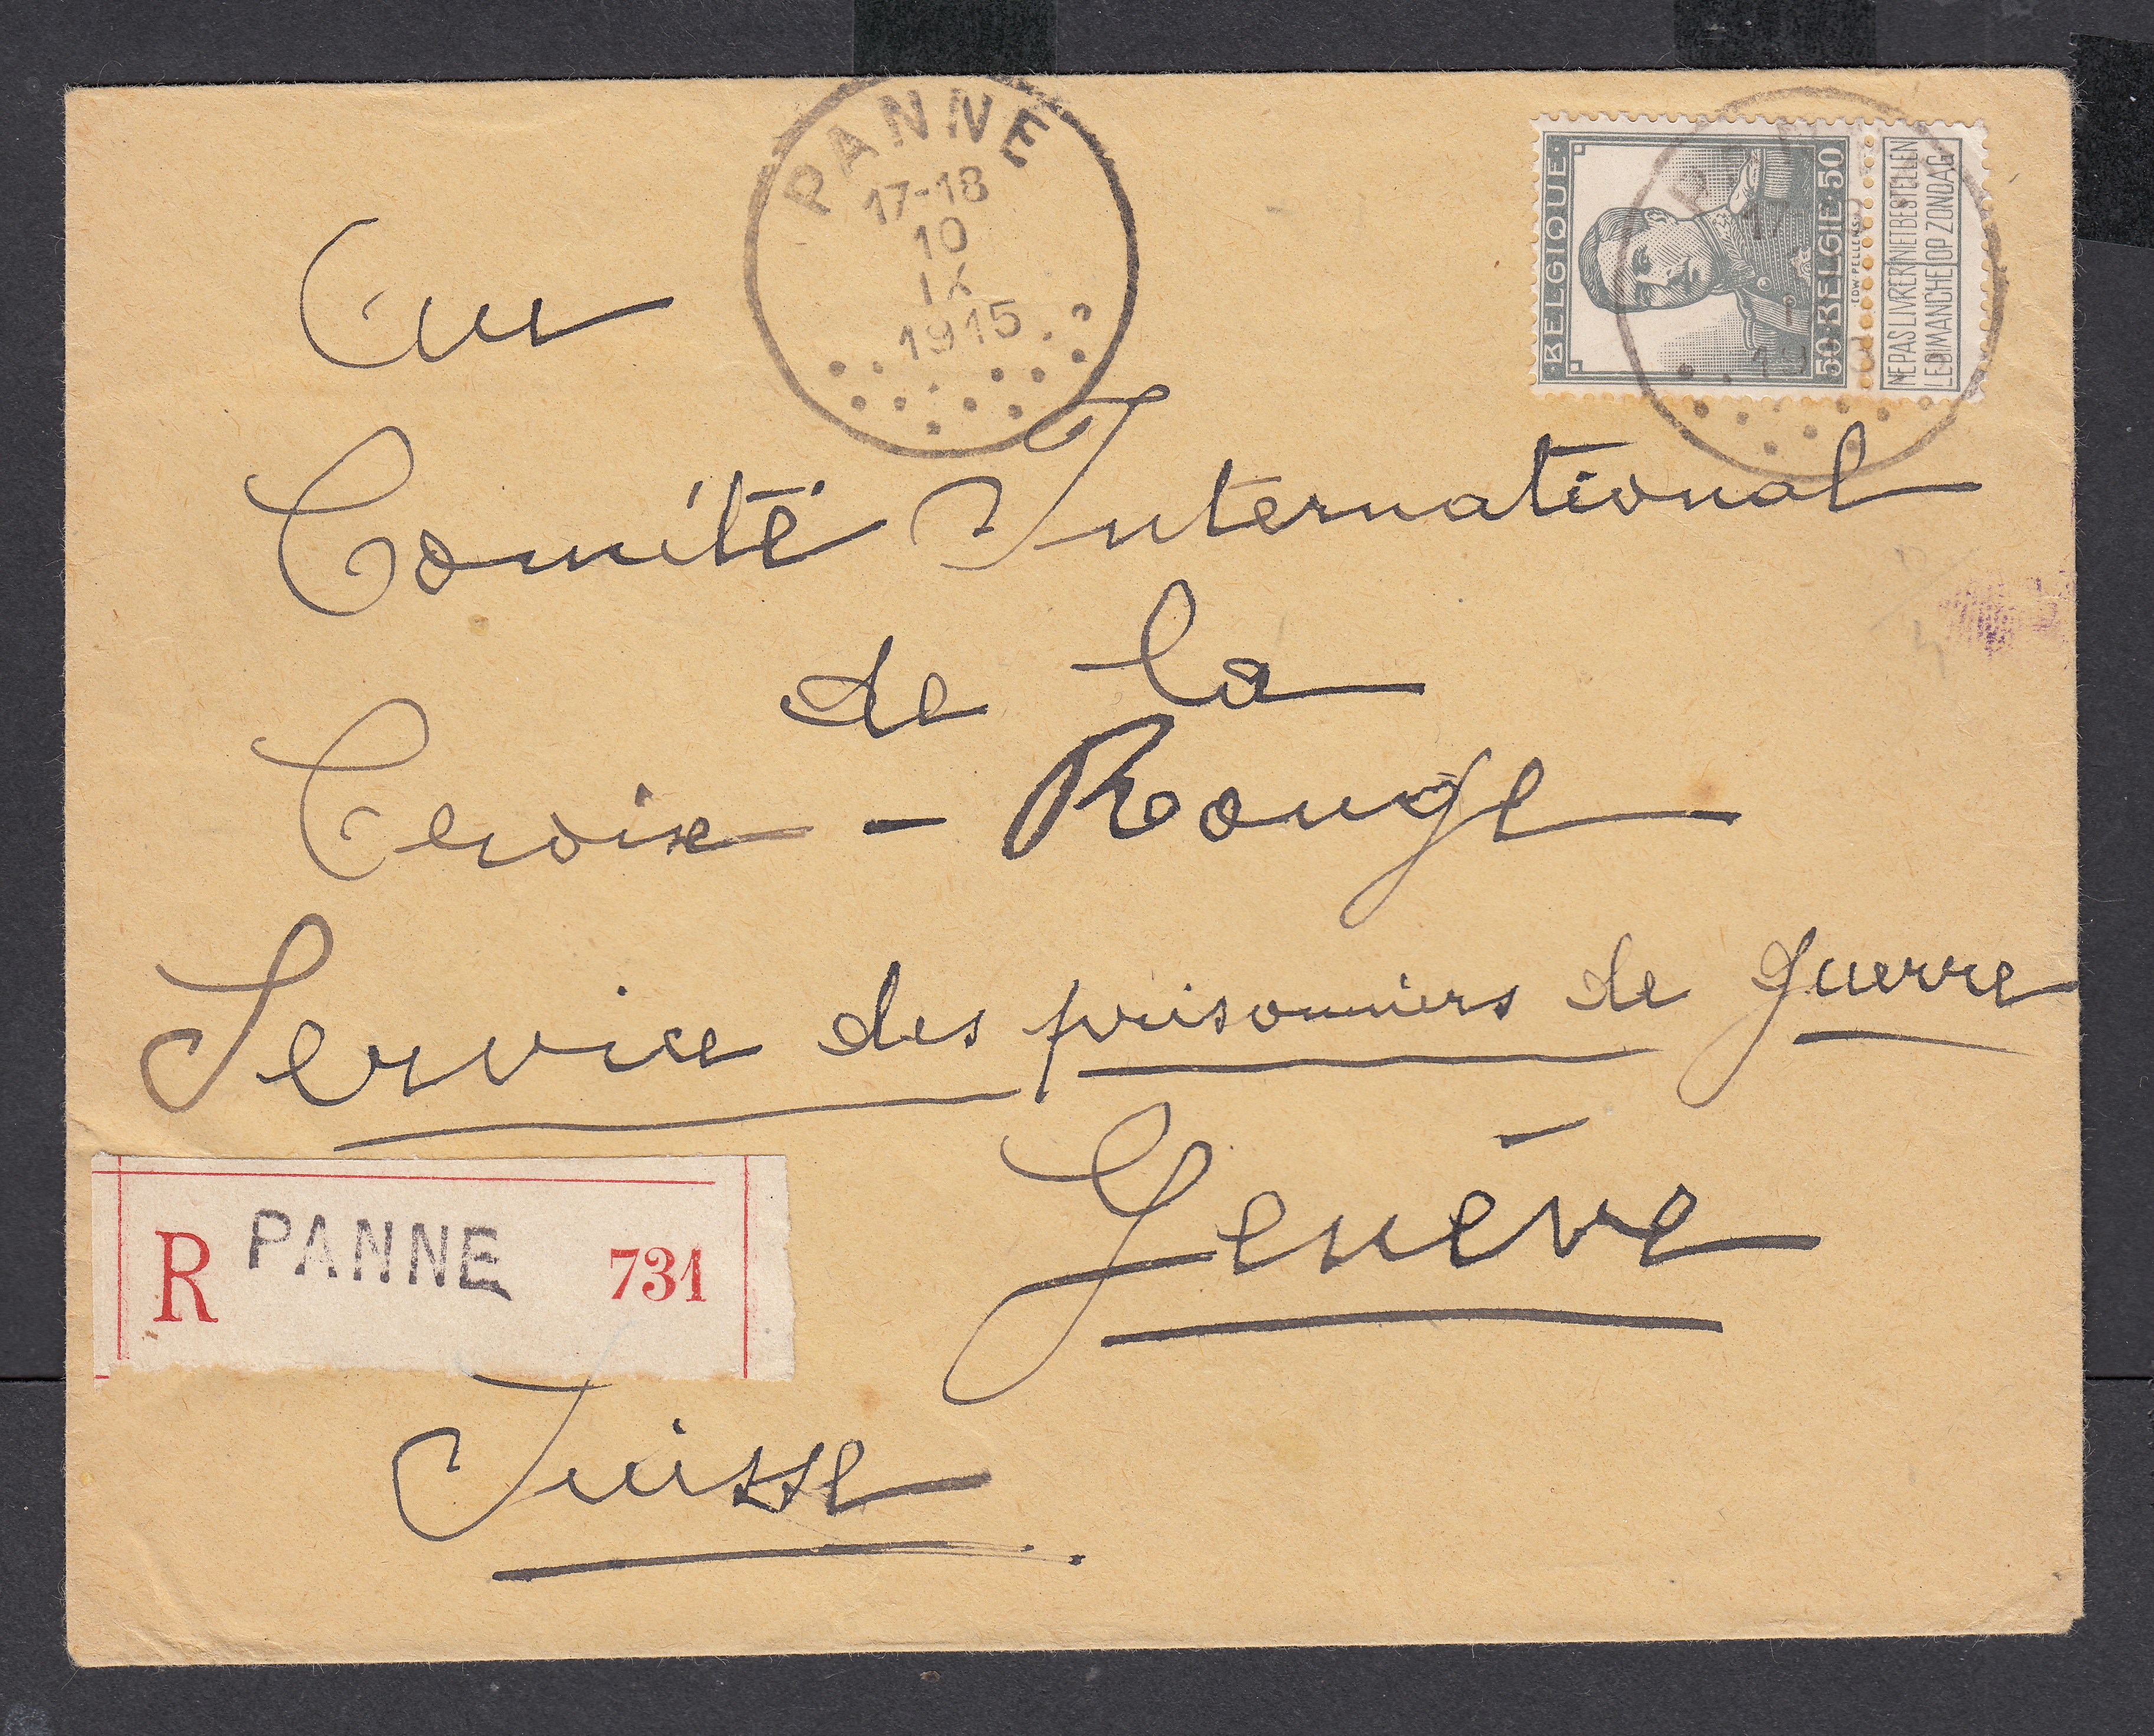 PANNE
17-18
10
IX
1915
BELGIQUE
50 BELGIË 50
EDW PELLENS
NE PAS LIVRER NIET BESTELLEN
LE DIMANCHE OP ZONDAG
Au
Comité International
de la
Croix - Rouge
Service des prisonniers de guerre
Genève
R PANNE 731
Suisse